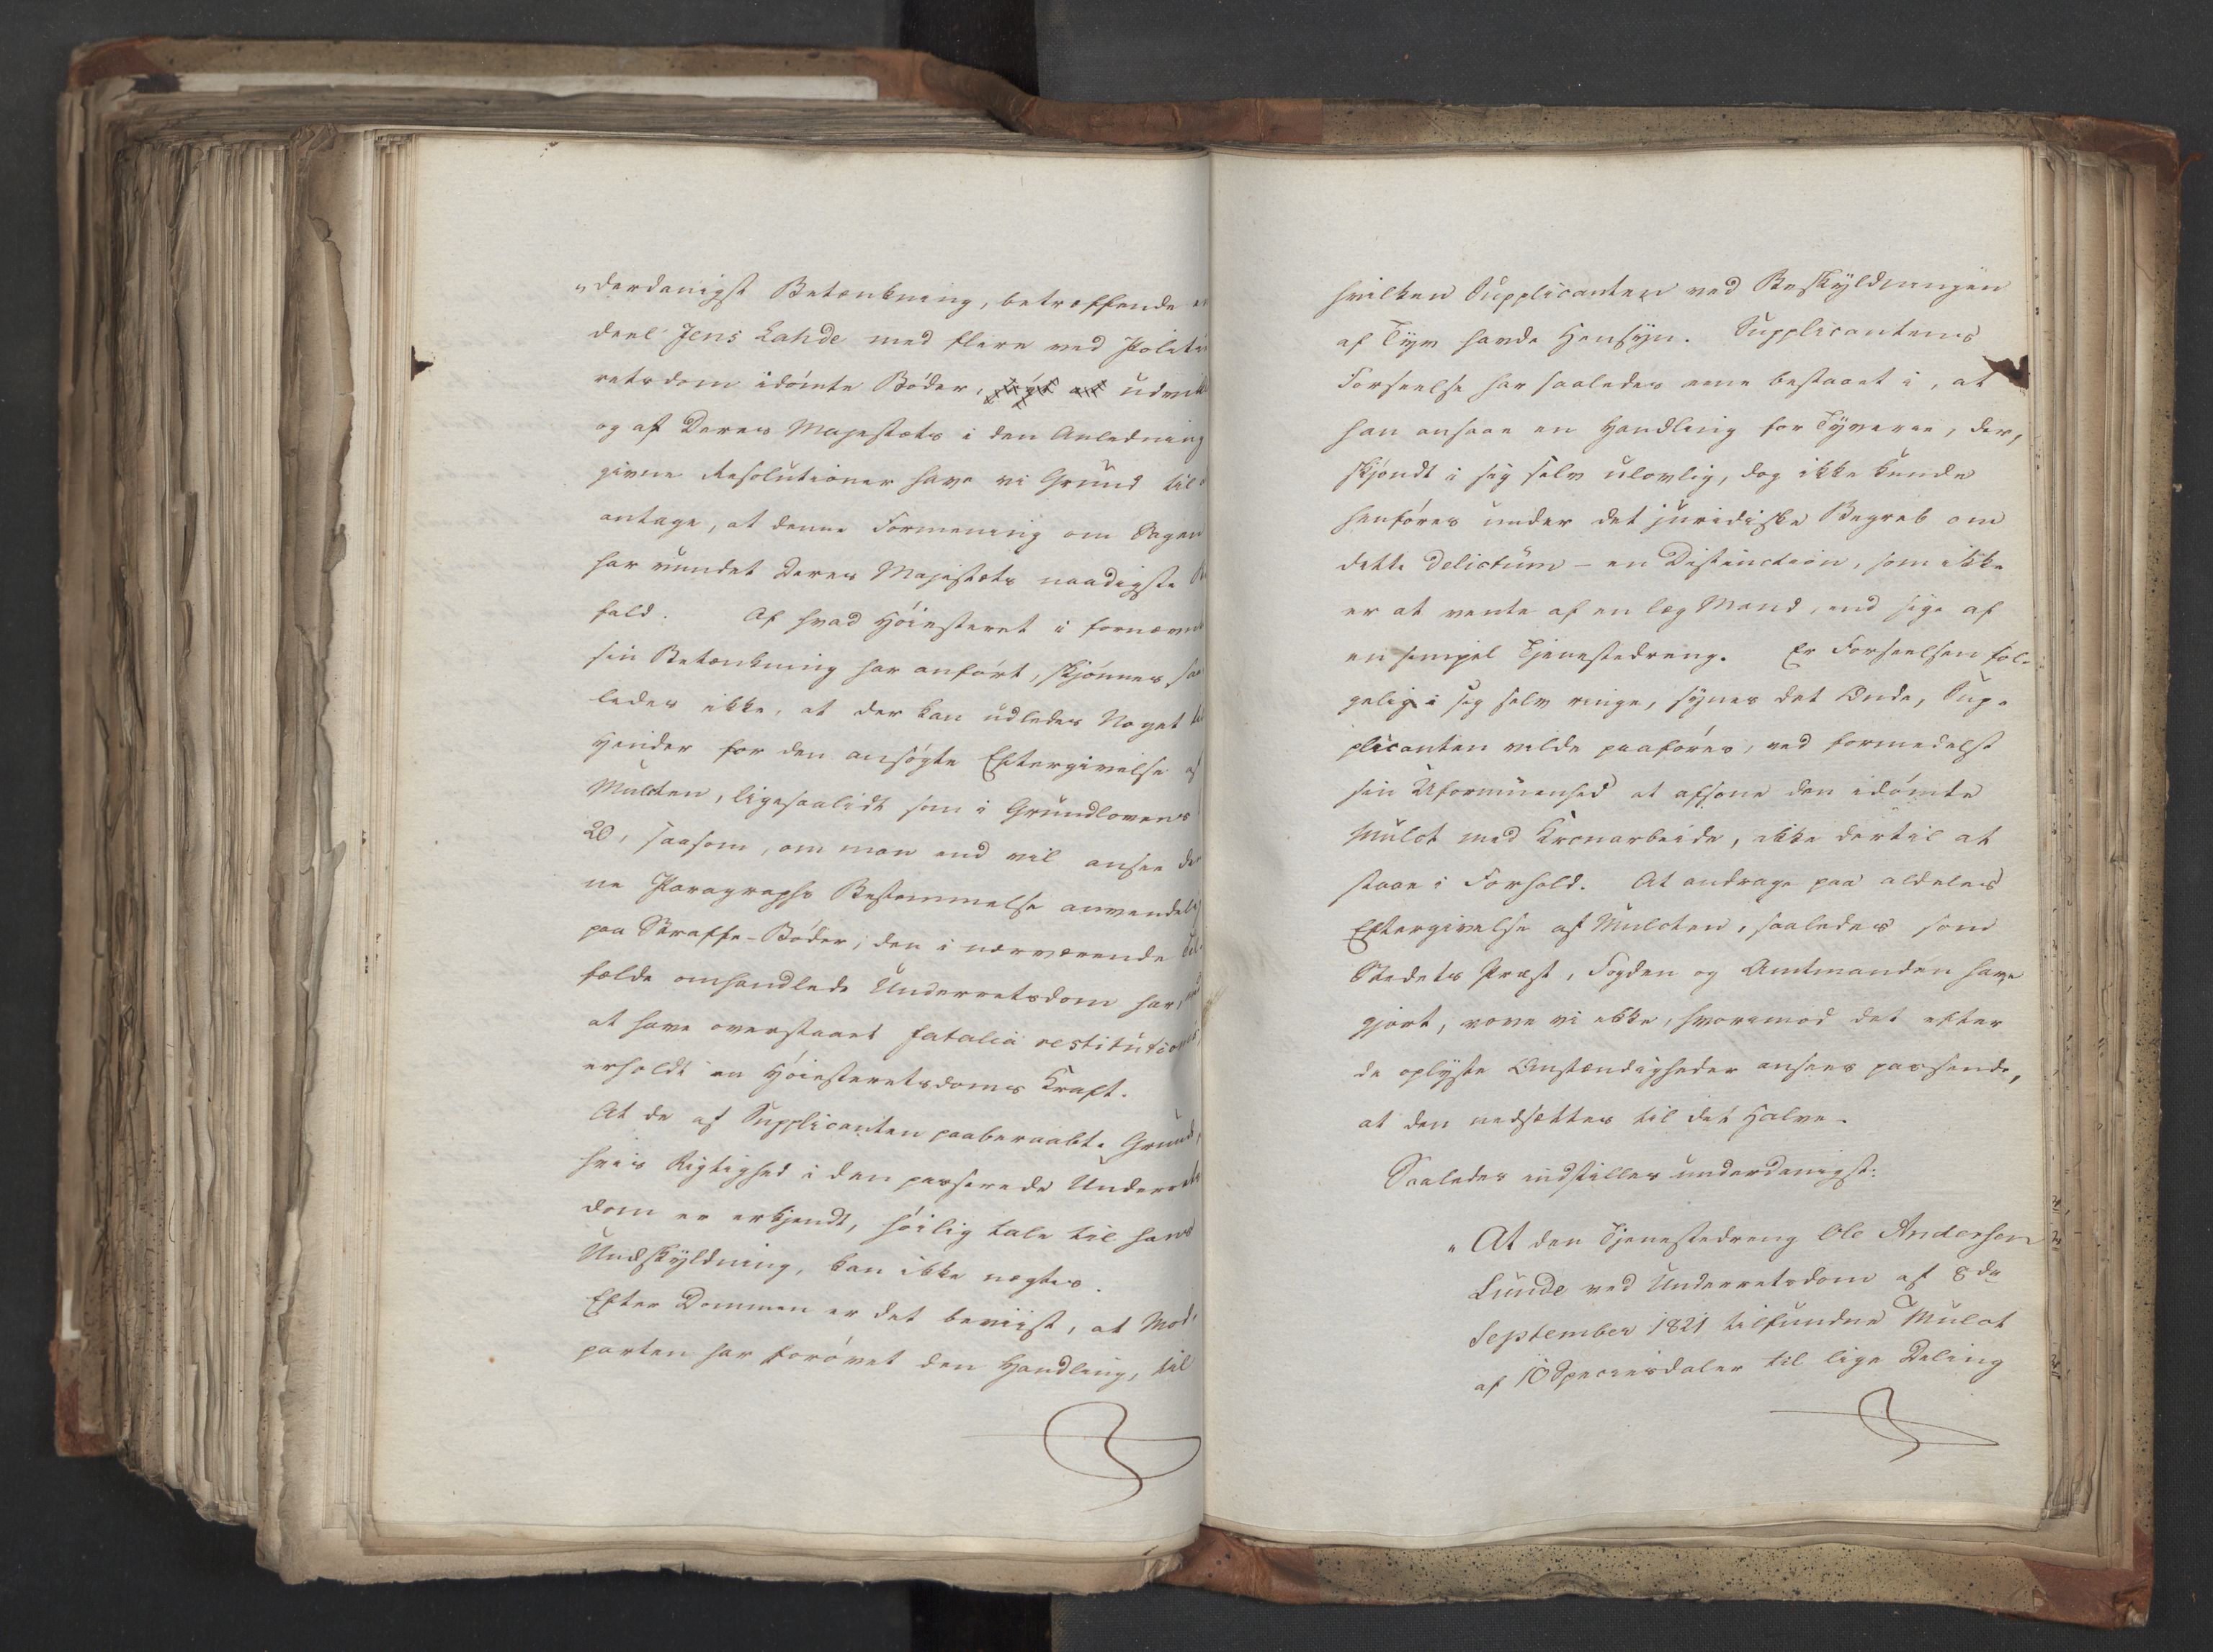 „derdanigst Betænkning, betræffende en
deel Jens Lahde med flere ved Politie
retsdom idømte Bøder, udvik
og af Deres Majestæts i den Anledning
givne Resolutioner have vi Grund til
antage, at denne Formening om Sagen
har vundet Deres Majestæts naadigste Bi
fald. Af hvad Høiesteret i fornævnte
sin Betænkning har anført, skjønnes saa
ledes ikke, at der kan udledes Noget til
Hinder for den ansøgte Eftergivelse af
Mulcten, ligesaalidt som i Grundlovens
20, saasom, om man end vil ansee den
ne Paragraphs Bestemmelse anvendelig
paa Straffe-Bøder, den i nærværende Til-
fælde omhandlede Underretsdom har, ved
at have overstaaet fatalia restitutionis,
erholdt en Høiesteretsdoms Kraft.
At de af Supplicanten paaberaabte Grunde,
hvis Rigtighed i den passerede Underrets
dom er erkjendt, høilig tale til hans
Undskyldning, kan ikke negtes.
Efter Dommen er det beviist, at Mod-
parten har forøvet den Handling, til
hvilken Supplicanten ved Beskyldningen
af Tyv havde Hensyn. Supplicantens
Forseelse har saaledes ene bestaaet i, at
han ansaae en Handling for Tyverie, der,
skjøndt i sig selv ulovlig, dog ikke kunde
henføres under det juridiske Begreb om
dette Delictum - en Distinction, som ikke
er at vente af en læg Mand, end sige af
en simpel Tjenestedreng. Er Forseelsen føl-
gelig i sig selv ringe, synes det Onde, Sup-
plicanten vilde paaføres, ved formedelst
sin Uformuenhed at afsone den idømte
Mulct med Kronarbeide, ikke dertil at
staae i Forhold. At andrage paa aldeles
Eftergivelse af Mulcten, saaledes som
Stedets Præst, Fogden og Amtmanden have
gjort, vove vi ikke, hvorimod det efter
de oplyste Omstændigheder ansees passende,
at den nedsættes til det Halve.
Saaledes indstilles underdanigst:
„At den Tjenestedreng Ole Andersen
Lunde ved Underretsdom af 8de
September 1821 tilfundne Mulct
af 10 Speciesdaler til lige Deling